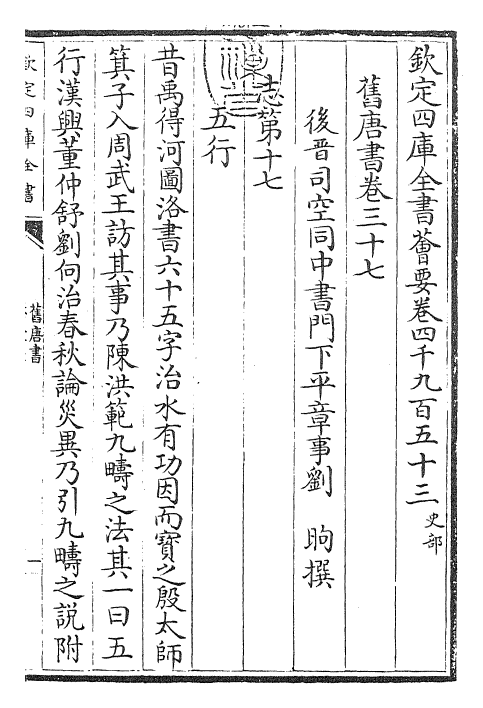 欽定四庫全書薈要卷四千九百五十三 史部
舊唐書卷三十七
後晉司空同中書門下平章事劉 昫撰
志第十七
五行
昔禹得河圖洛書六十五字治水有功因而寶之殷太師
箕子入周武王訪其事乃陳洪範九疇之法其一曰五
行漢興董仲舒劉向治春秋論災異乃引九疇之説附
欽定四庫全書
舊唐書
一